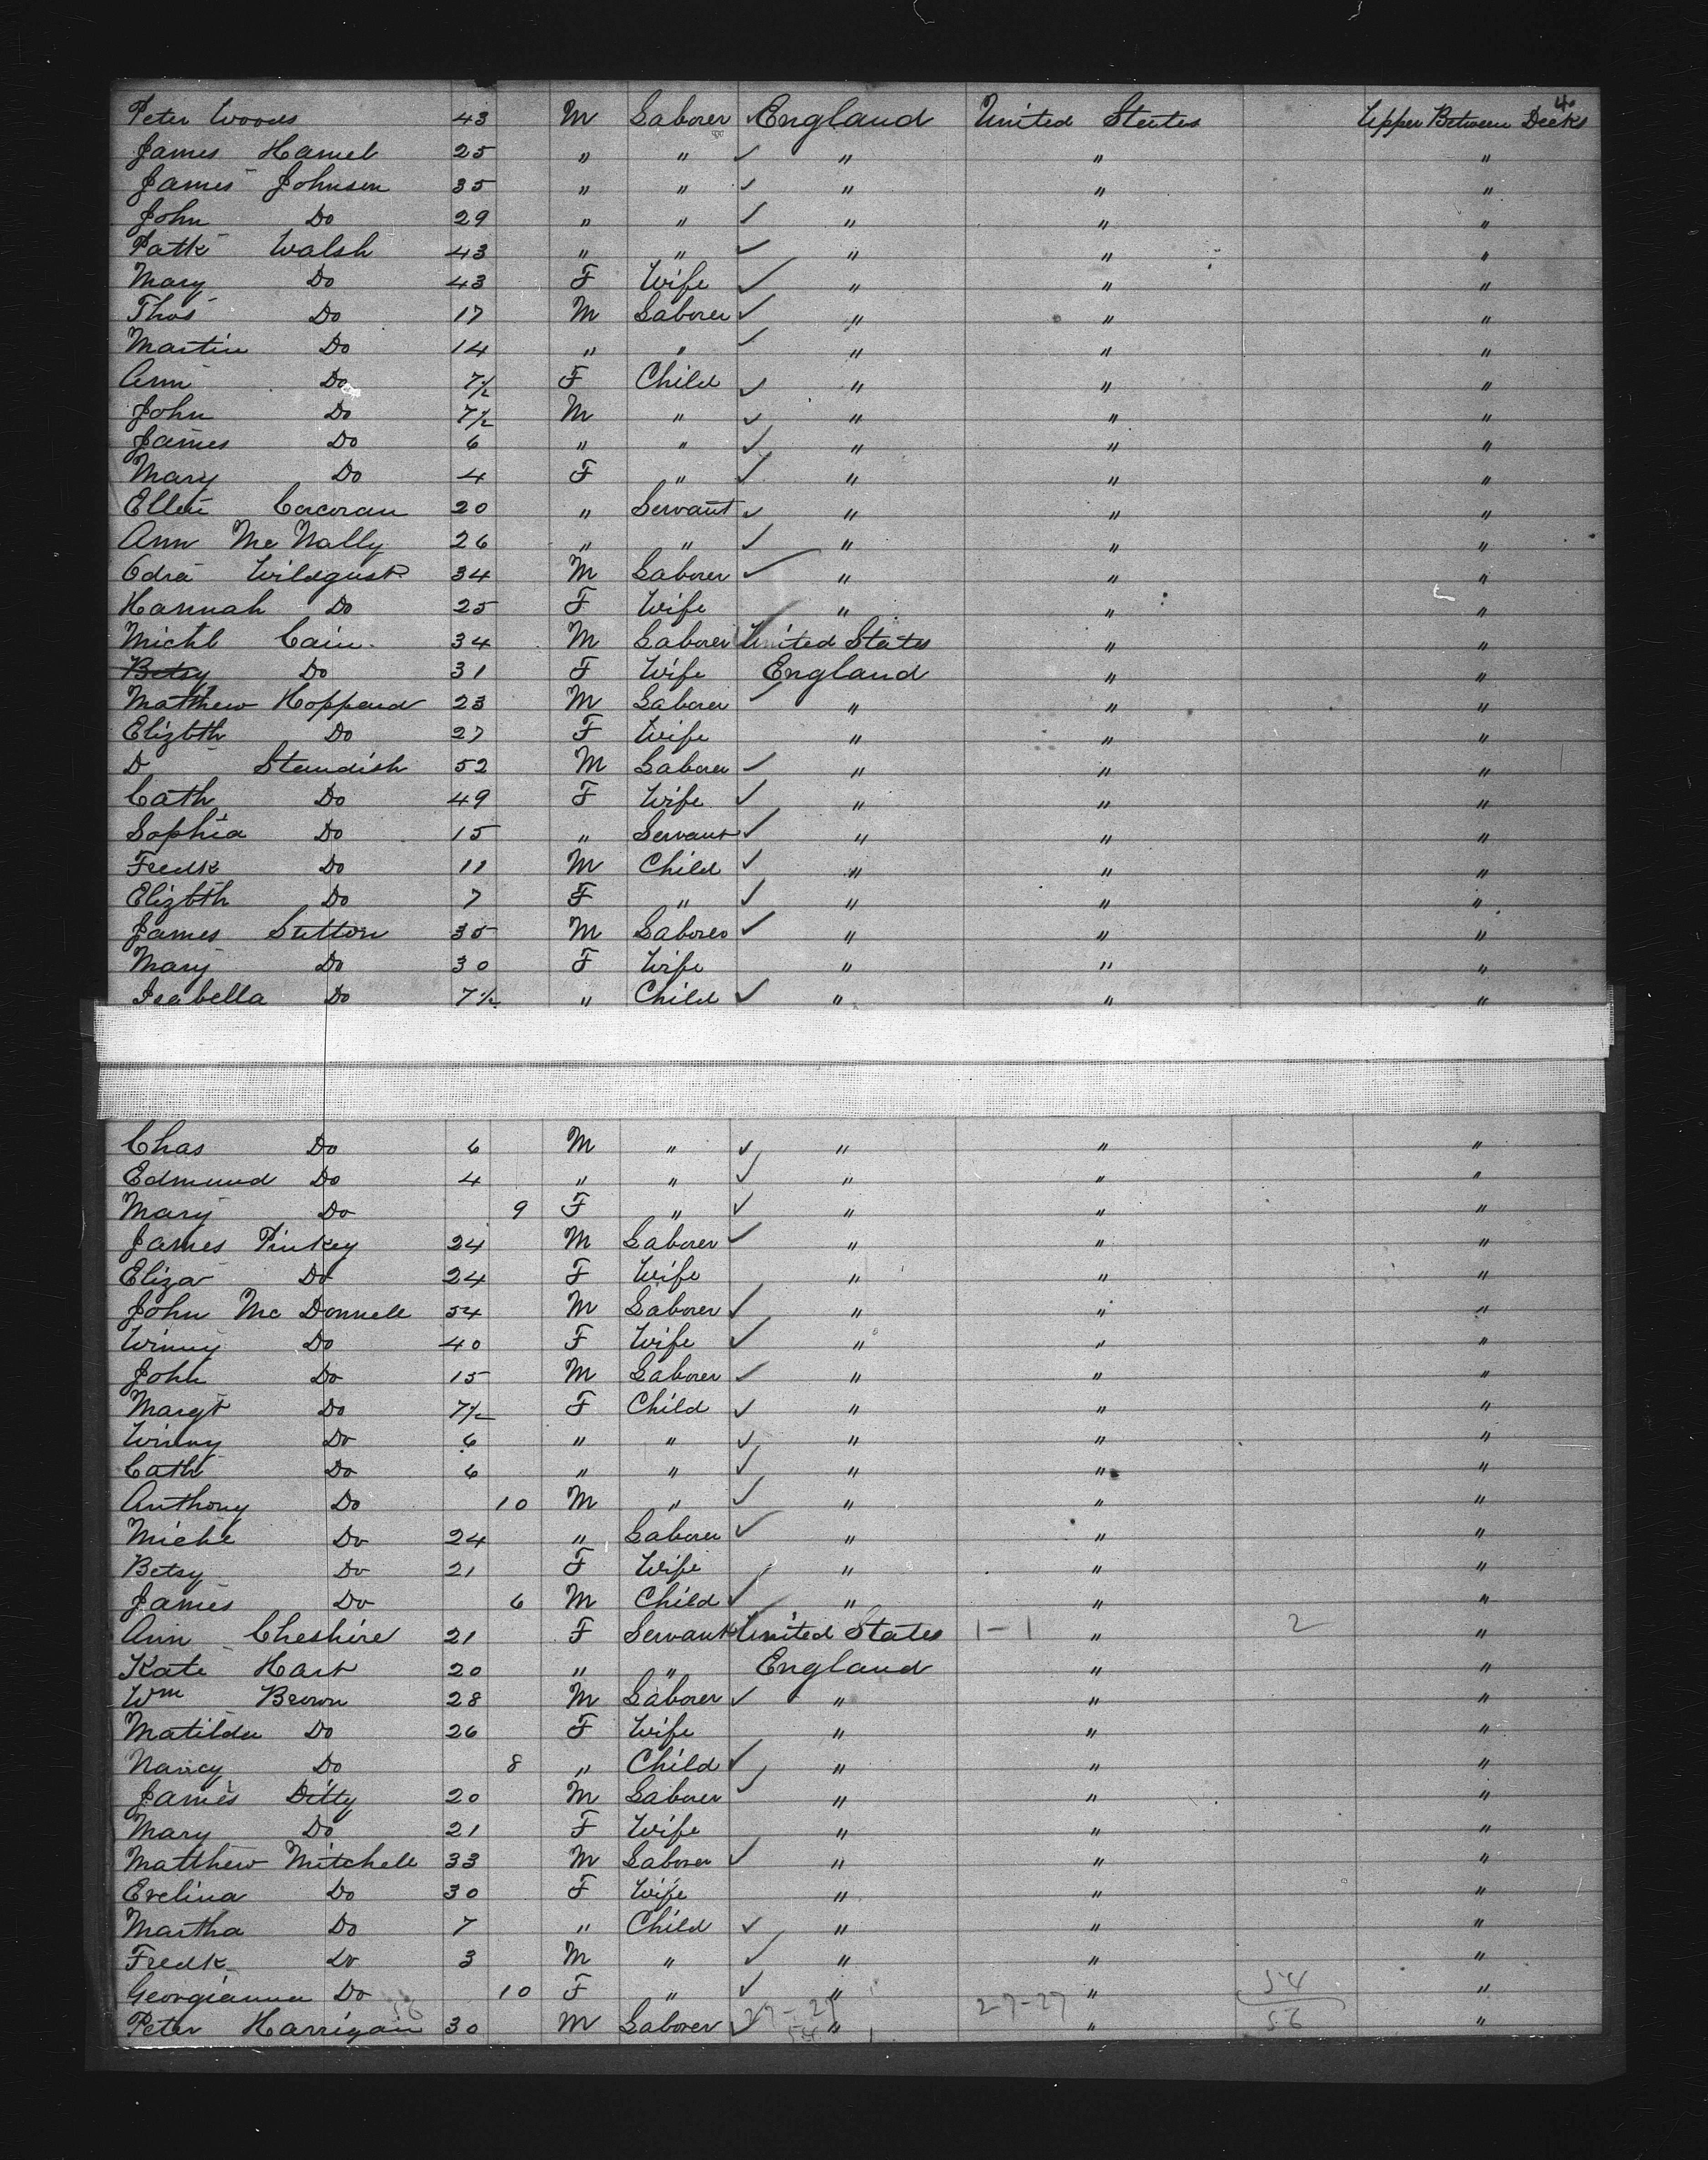 4.
Peter Woods 43 M Laborer England United States Upper Between Decks
James Hamel 25 " " " " "
James Johnson 35 " " " " "
John Do 29 " " " " "
Patk Walsh 43 " " " " "
Mary Do 43 F Wife " " "
Thos Do 17 M Laborer " " "
Martin Do 14 " " " " "
Ann Do 7½ F Child " " "
John Do 7½ M " " " "
James Do 6 " " " " "
Mary Do 4 F " " " "
Ellen Corcoran 20 " Servant " " "
Ann McNally 26 " " " " "
Wildgust 34 M Laborer " " "
Hannah Do 25 F Wife " " "
Michl Cain 34 M Laborer United States " "
Betsy Do 31 F Wife England " "
Matthew Hoppend 23 M Laborer " " "
Elizbth Do 27 F Wife " " "
D Standish 52 M Laborer " " "
Cath Do 49 F Wife " " "
Sophia Do 15 " Servant " " "
Fredk Do 11 M Child " " "
Elizbth Do 7 F " " " "
James Sutton 35 M Laborer " " "
Mary Do 30 F Wife " " "
Isabella Do 7½ " Child " " "
Chas Do 6 M " " " "
Edmund Do 4 " " " " "
Mary Do 9 F " " " "
James Pinkey 24 M Laborer " " "
Eliza Do 24 F Wife " " "
John McDonnell 54 M Laborer " " "
Winny Do 40 F Wife " " "
John Do 15 M Laborer " " "
Margt Do 7½ F Child " " "
Winny Do 6 " " " " "
Cath Do 6 " " " " "
Anthony Do 10 M " " " "
Michl Do 24 " Laborer " " "
Betsy Do 21 F Wife " " "
James Do 6 M Child " " "
Ann Cheshire 21 F Servant United States 1-1 " 2 "
Kate Hart 20 " " England " "
Wm Brown 28 M Laborer " " "
Matilda Do 26 F Wife " " "
Nancy Do 8 " Child " " "
James Ditty 20 M Laborer " " "
Mary Do 21 F Wife " " "
Matthew Mitchell 33 M Laborer " " "
Evelina Do 30 F Wife " " "
Martha Do 7 " Child " " "
Fredk Do 3 M " " " "
Georgianna Do 10 F " " " 54 "
Peter Harrigan 30 M Laborer 27-27 " 27-27 " 56 "